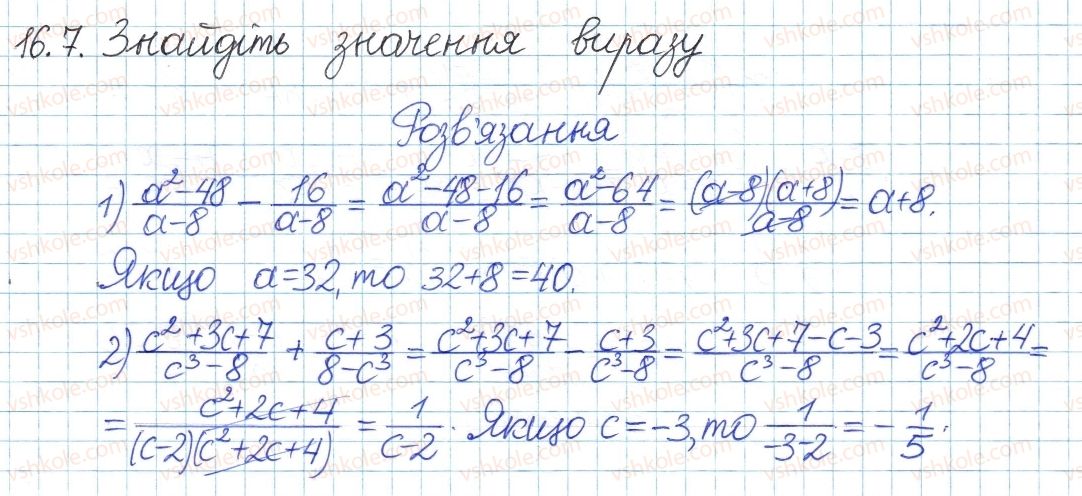 16.7. Знайдіть значення виразу
Розв'язання
1) (a²-48)/(a-8) - 16/(a-8) = (a²-48-16)/(a-8) = (a²-64)/(a-8) = ((a-8)(a+8))/(a-8) = a+8.
Якщо a=32, то 32+8=40.
2) (c²+3c+7)/(c³-8) + (c+3)/(8-c³) = (c²+3c+7)/(c³-8) - (c+3)/(c³-8) = (c²+3c+7-c-3)/(c³-8) = (c²+2c+4)/(c³-8) =
= (c²+2c+4)/((c-2)(c²+2c+4)) = 1/(c-2). Якщо c=-3, то 1/(-3-2) = -1/5.